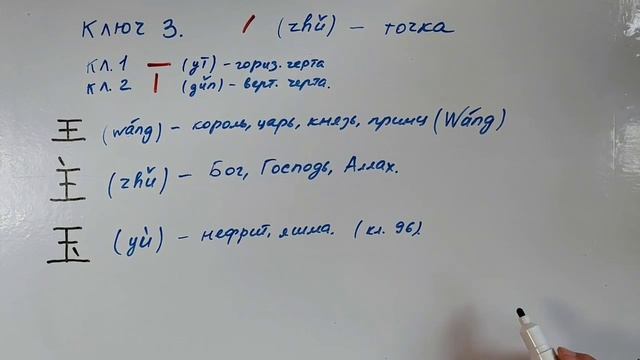 Ключ 3. 丶 (zhǔ) – точка
Кл. 1 一 (yī) – гориз. черта
Кл. 2 丨 (gǔn) – верт. черта.
王 (wáng) – король, царь, князь, принц (Wáng)
主 (zhǔ) – Бог, Господь, Аллах.
玉 (yù) – нефрит, яшма. (кл. 96).